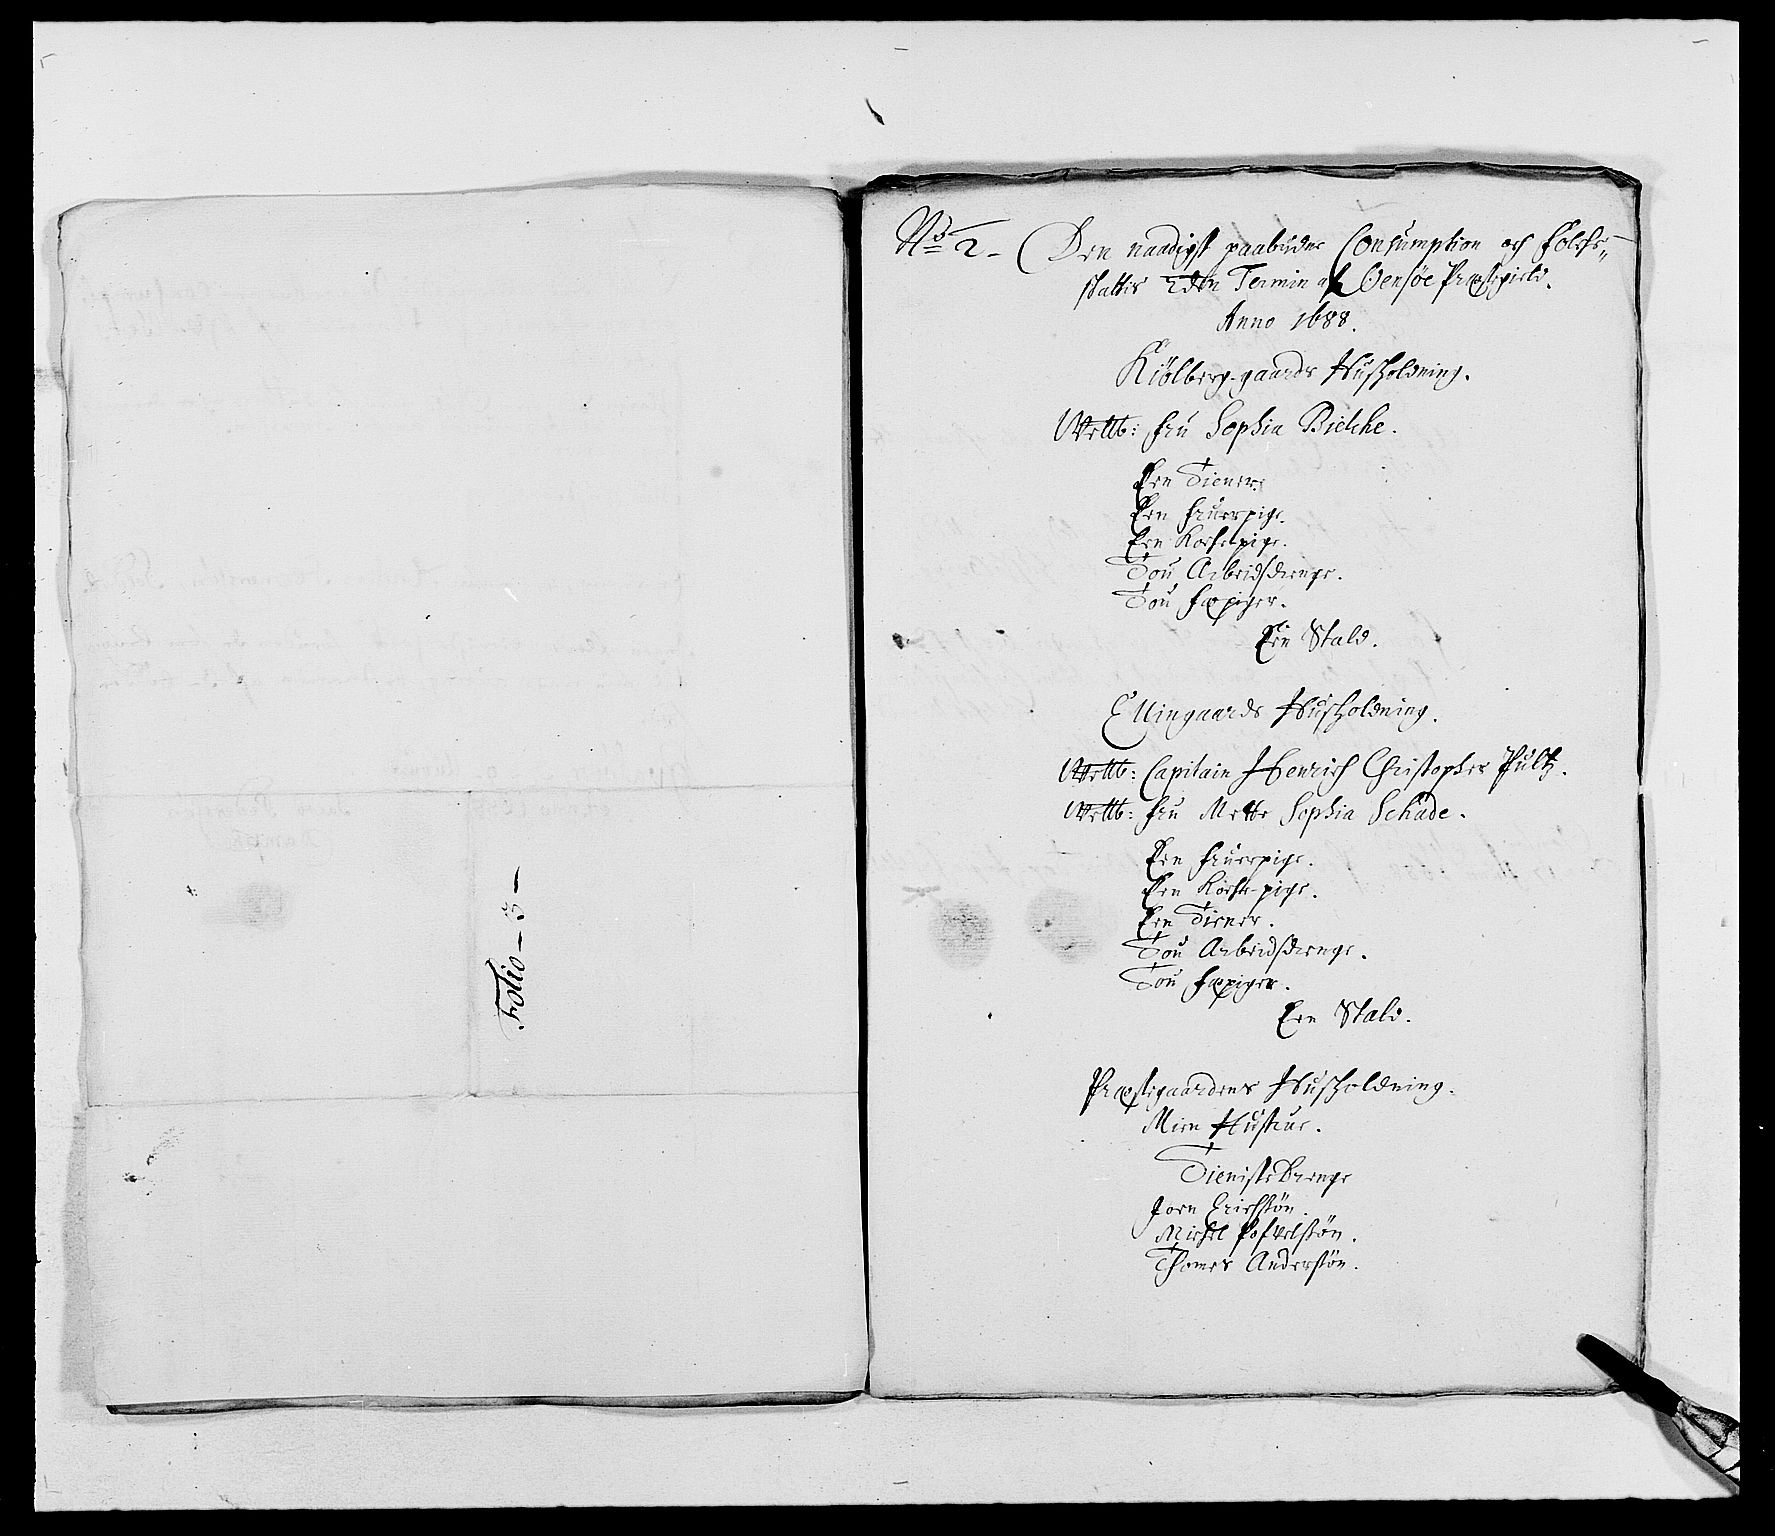 Folio - 3 -
No 2 - Den naadigst paabudne Consumption och Folche-
skattis 2den Termin af Oensøe Præstegield.
Anno 1688.
Kiölberg-gaards Husholdning.
Welb: Fru Sophia Bielche.
Een Tiener.
Een Fruerpige.
Een Kochepige.
Tou Arbeidsdrenge.
Tou Fæpiger.
Een Stald.
Ellingaards Husholdning.
Welb: Capitain Henrich Christopher Pultz.
Welb: Fru Mette Sophia Schade.
Een Fruerpige.
Een Koche-pige.
Een Tiener.
Tou Arbeidsdrenge.
Tou Fæpiger.
Een Stald.
Præstegaardens Husholdning.
Mien Hustrue.
Tieniste Drenge
Joen Erichsøn.
Michel Pofvelsøn.
Thomes Andersøn.